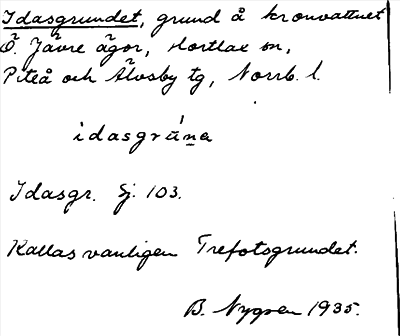 Idasgrundet, grund å kronvattnet
Ö. Jävre ägor, Hortlax sn,
Piteå och Älvsby tg, Norrb. l.
idasgrúna
Idasgr. Sj. 103.
Kallas vanligen Trefotsgrundet.
B. Nygren 1935.